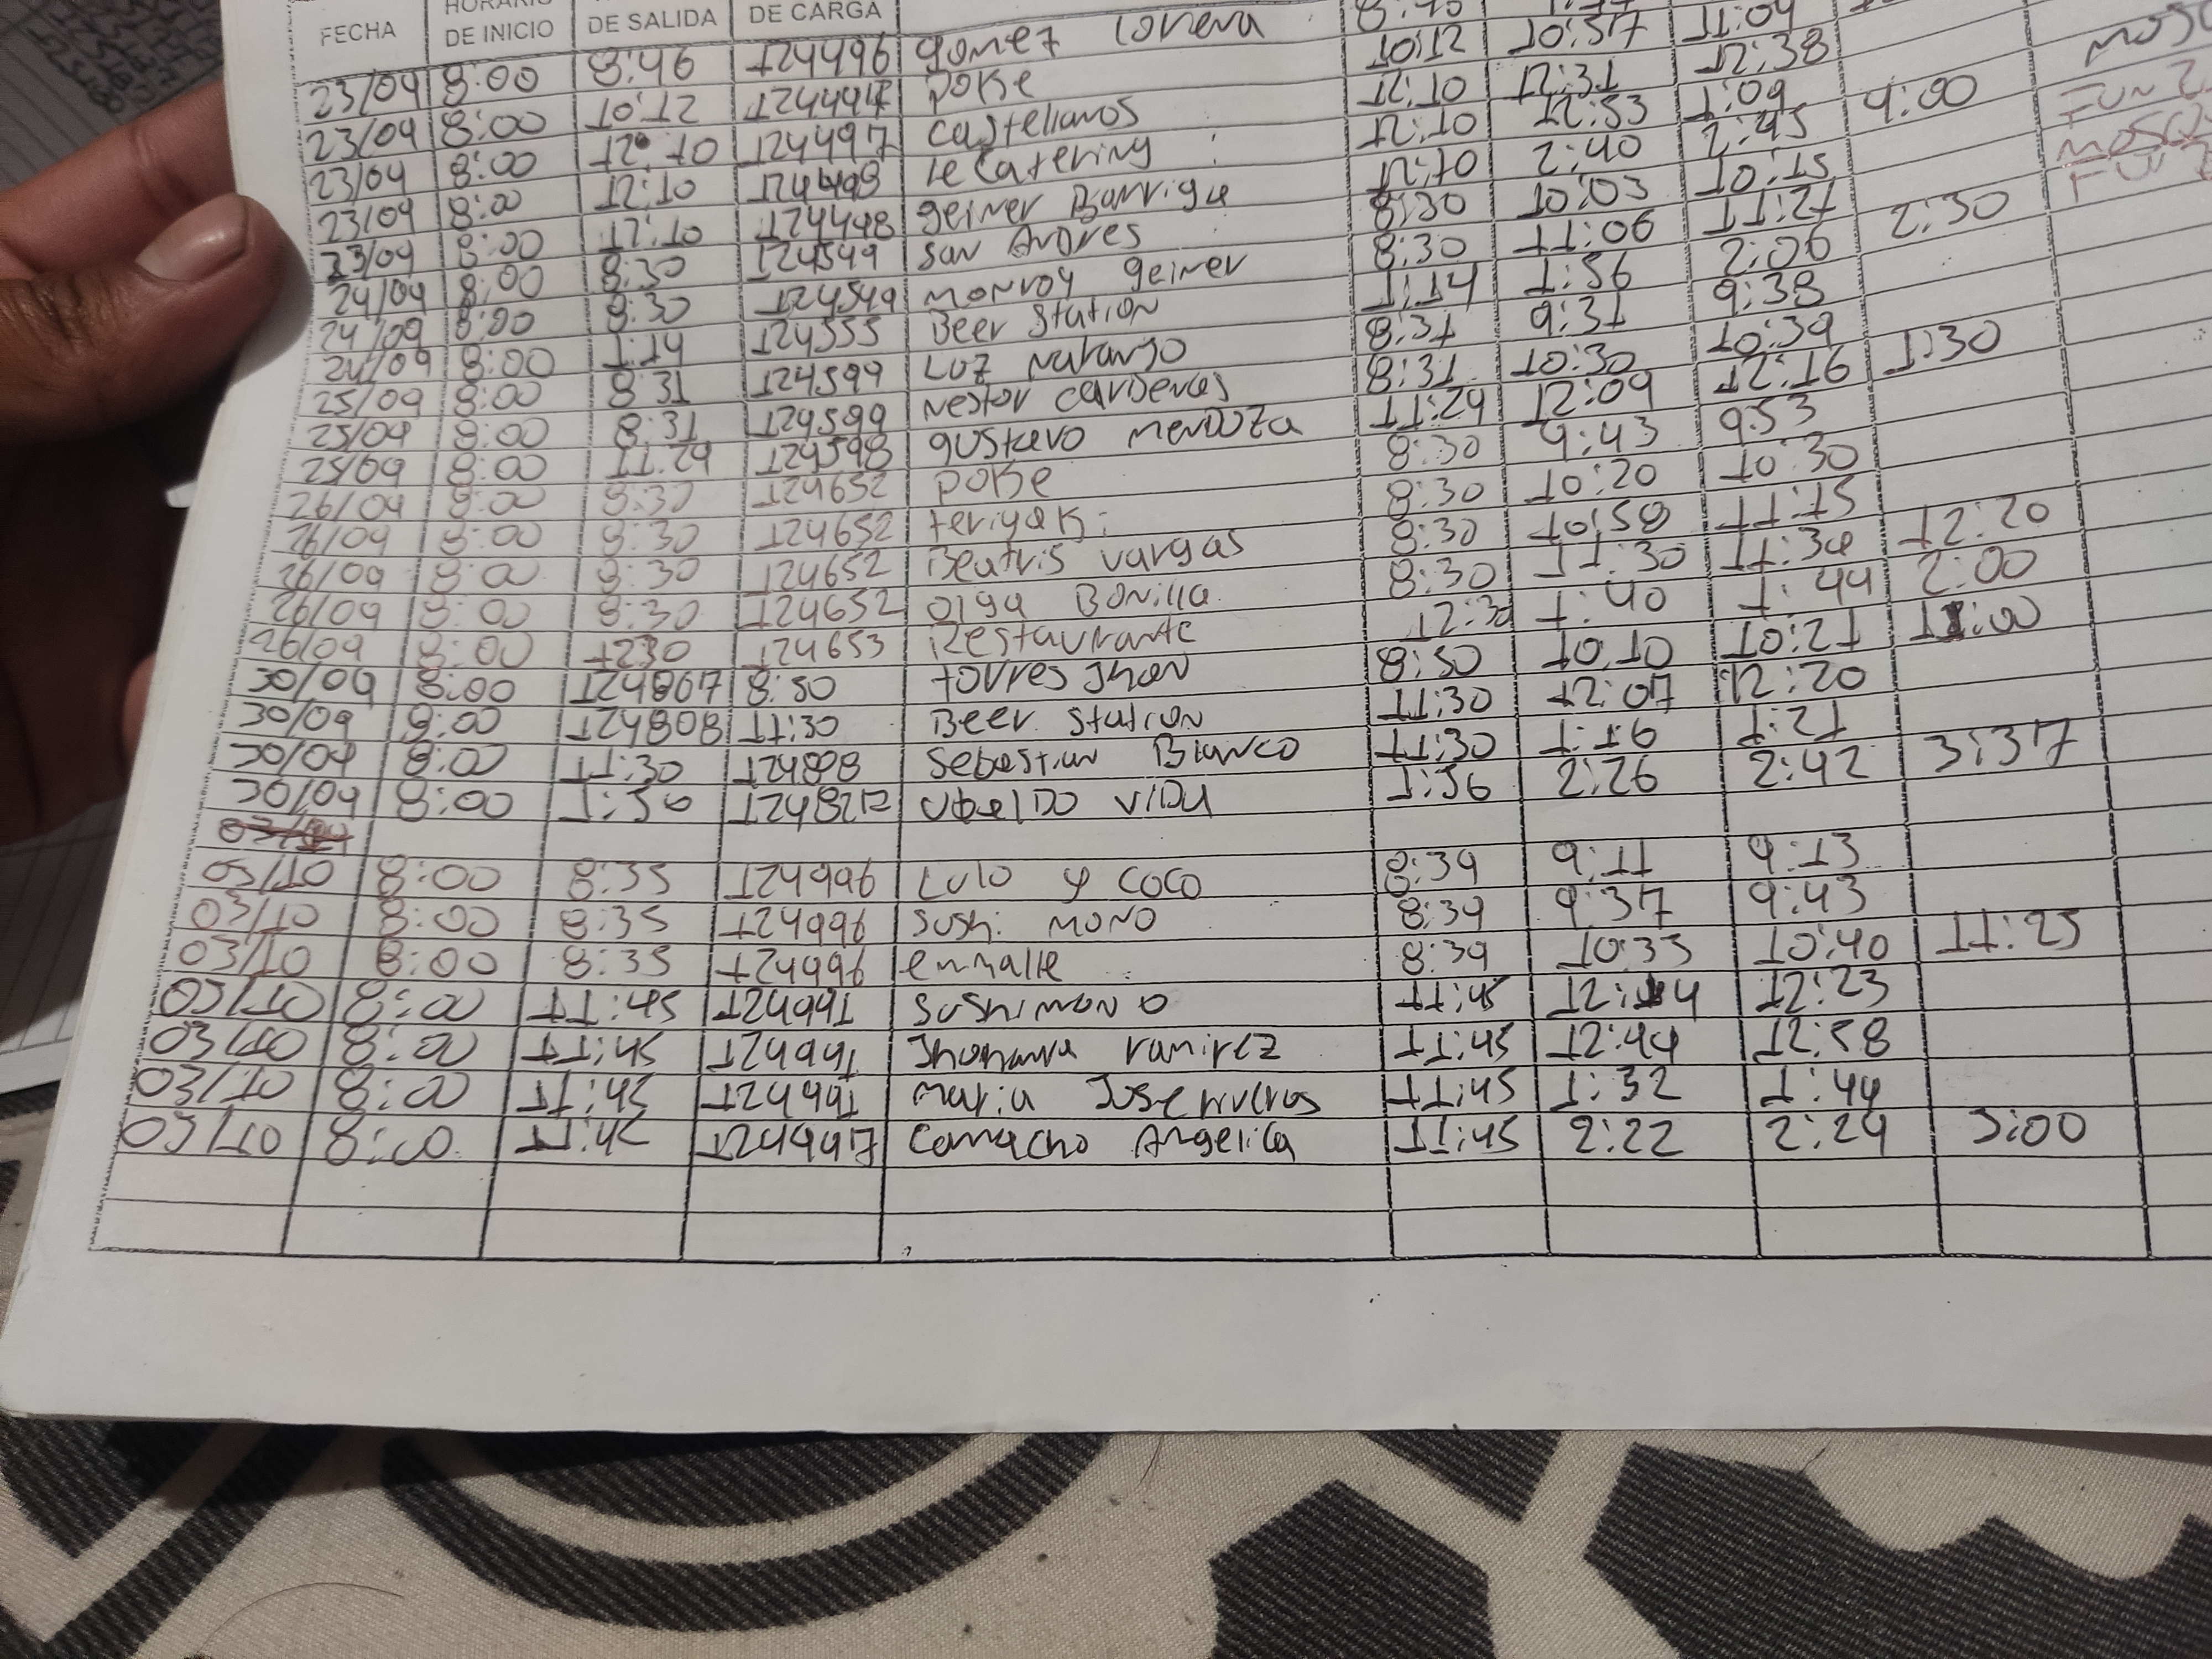 FECHA HORARIO DE INICIO DE SALIDA DE CARGA
23/09 8:00 8:46 124496 gomez Lorena
23/09 8:00 10:12 poke 10:12 10:57 11:04
23/09 8:00 12:10 124497 castellanos 12:10 12:31 12:38
23/09 8:00 12:10 124498 le Catering 12:10 12:53 1:09
23/09 8:00 12:10 124498 geiner Barrigu 12:10 2:40 2:45 4:00
24/09 8:00 8:30 124549 san Andres 8:30 10:03 10:15
24/09 8:00 8:30 124549 monroy geiner 8:30 11:06 11:27
24/09 8:00 1:14 124555 Beer Station 1:14 1:56 2:06 2:30
25/09 8:00 8:31 124599 Luz naranjo 8:31 9:31 9:38
25/09 8:00 8:31 124599 nestor cardenas 8:31 10:30 10:39
25/09 8:00 11:24 124598 gustavo mendoza 11:24 12:09 12:16 1:30
26/09 8:00 8:30 124652 poke 8:30 9:43 9:53
26/09 8:00 8:30 124652 teriyaki 8:30 10:20 10:30
26/09 8:00 8:30 124652 Beatris vargas 8:30 10:58 11:15
26/09 8:00 8:30 124652 olga Bonilla 8:30 11:30 11:34 12:20
26/09 8:00 1230 124653 Restaurante 12:30 1:40 1:44 2:00
30/09 8:00 124807 8:50 torres Jhon 8:50 10:10 10:21 11:00
30/09 8:00 124808 11:30 Beer Station 11:30 12:07 12:20
30/09 8:00 11:30 124808 Sebastian Blanco 11:30 1:16 1:21
30/09 8:00 1:56 Ubaldo VIDU 1:56 2:26 2:42 3:37
03/10 8:00 8:35 124996 Lulo y coco 8:39 9:11 9:13
03/10 8:00 8:35 124996 sushi mono 8:39 9:37 9:43
03/10 8:00 8:35 124996 enmalle 8:39 10:35 10:40 11:25
03/10 8:00 11:45 Sushimono 11:45 12:14 12:23
03/10 8:00 11:45 Jhohanna ramirez 11:45 12:44 12:58
03/10 8:00 11:45 maria Jose 11:45 1:32 1:44
03/10 8:00 11:45 124997 Camacho Angelica 11:45 2:22 2:29 3:00